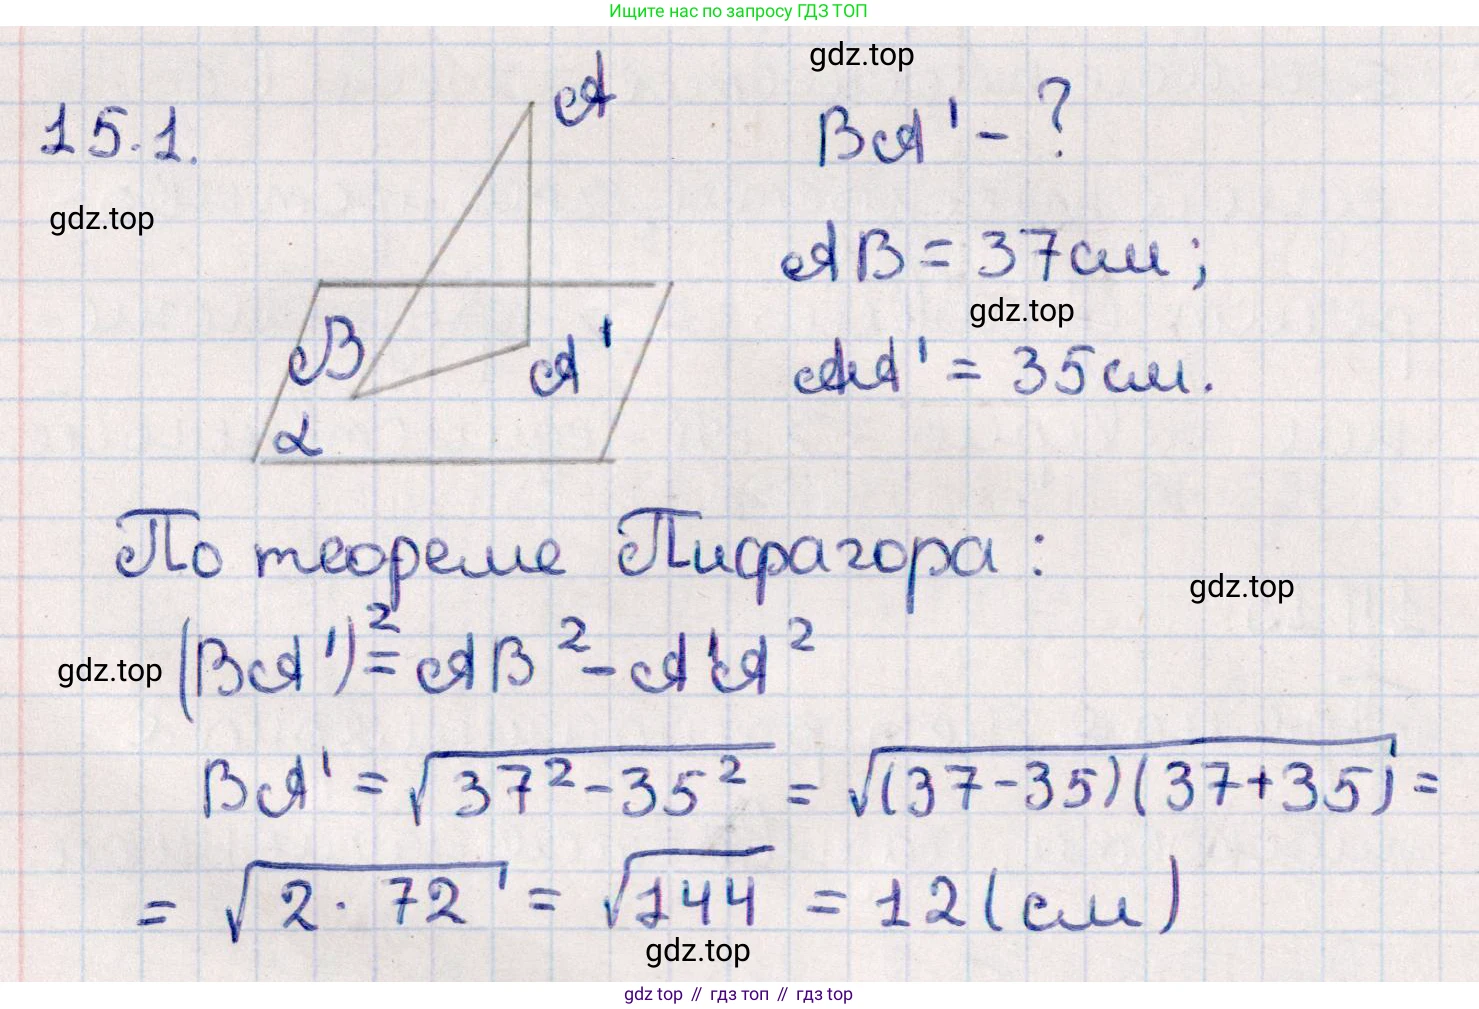 Ищите нас по запросу ГДЗ ТОП
gdz.top
15.1.
A
BA' - ?
gdz.top
AB = 37см;
gdz.top
B
A'
AA' = 35см.
α
По теореме Пифагора:
gdz.top
(BA')² = AB² - A'A²
gdz.top
BA' = √37² - 35² = √(37-35)(37+35) =
= √2 · 72 = √144 = 12 (см)
gdz.top
gdz top // гдз топ // гдз top